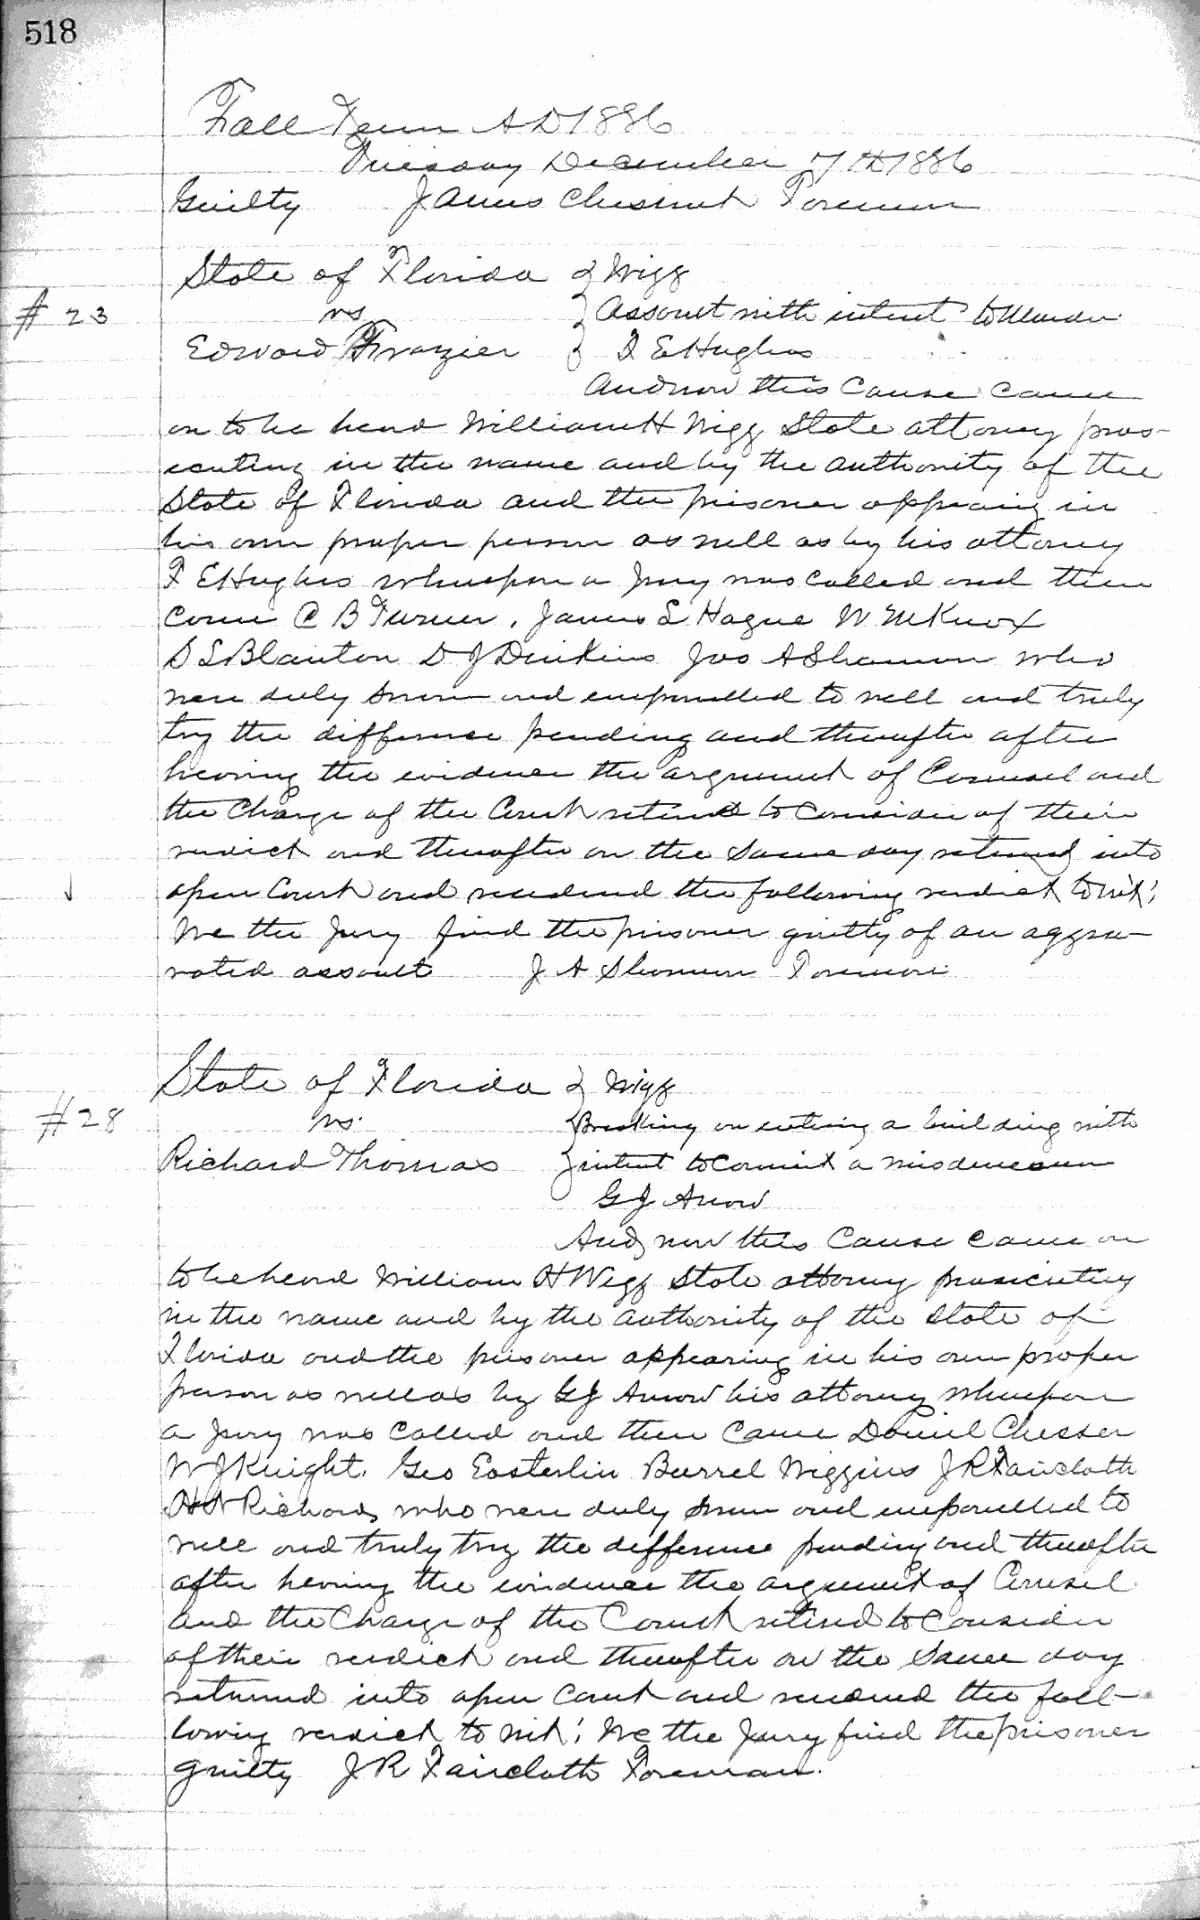 518
Fall Term A D 1886
Tuesday December 7 AD 1886
Guilty James Chesnut Foreman
State of Florida } Wigg
# 23 vs } Assault with intent to Murder
Edward Frazier } F E Hughes
And now this Cause came
on to be heard William H Wigg State attorney pros-
ecuting in the name and by the authority of the
State of Florida and the prisoner appearing in
his own proper person as well as by his attorney
F E Hughes whereupon a Jury was called and then
came C B Turner, James L Hague W M Knox
S L Blanton D J Dinkins Jos A Shannon who
were duly sworn and empanelled to well and truly
try the difference pending and thereafter after
hearing the evidence the argument of Counsel and
the Charge of the Court retired to Consider of their
verdict and thereafter on the same day returned into
open Court and rendered the following verdict to wit;
We the Jury find the prisoner guilty of an aggra-
vated assault J A Shannon Foreman
State of Florida } Wigg
#28 vs. } Breaking or entering a building with
Richard Thomas } intent to Commit a misdemeanor
G J Arrow
And now this Cause came on
to be heard William H Wigg State attorney prosecuting
in the name and by the authority of the State of
Florida and the prisoner appearing in his own proper
person as well as by G J Arrow his attorney Whereupon
a Jury was Called and then Came Daniel Chesser
W J Knight, Geo Easterlin Burrel Wiggins J R Faircloth
H N Richards who were duly sworn and empanelled to
well and truly try the difference pending and thereafter
after hearing the evidence the argument of Counsel
and the Charge of the Court retired to Consider
of their verdict and thereafter on the Same day
returned into open Court and rendered the foll-
lowing verdict to wit; We the Jury find the prisoner
guilty J R Faircloth Foreman.